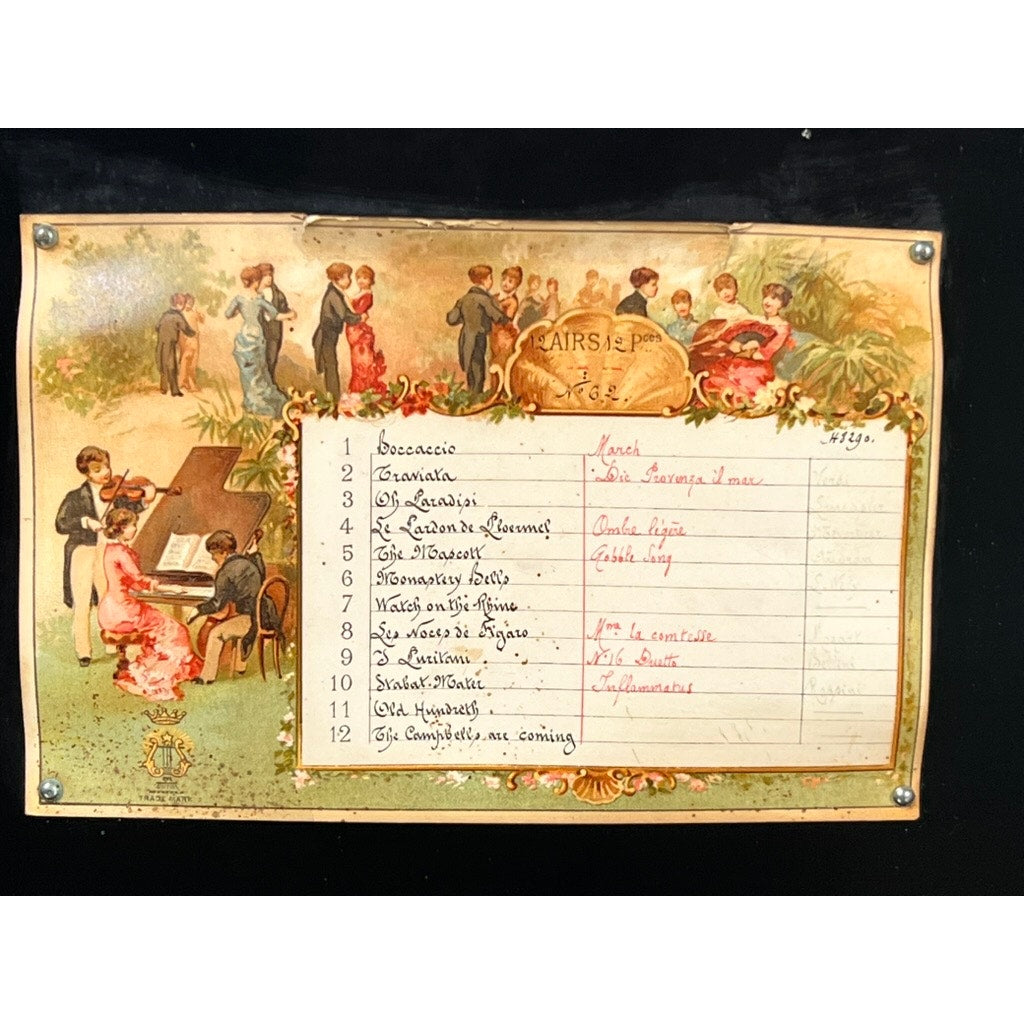 12 AIRS 12 Pces
No 62.
H5290.
1 Boccaccio March
2 Traviata Dic Provenza il mar Verdi
3 Oh Paradisi
4 Le Pardon de Ploermel Ombre légère
5 The Mascott Gobble Song
6 Monastery Bells
7 Watch on the Rhine
8 Les Noces de Figaro Mma la comtesse Mozart
9 I Puritani No 16 Duetto
10 Stabat-Mater Inflammatus Rossini
11 Old Hundreth
12 The Campbells are coming
TRADE MARK